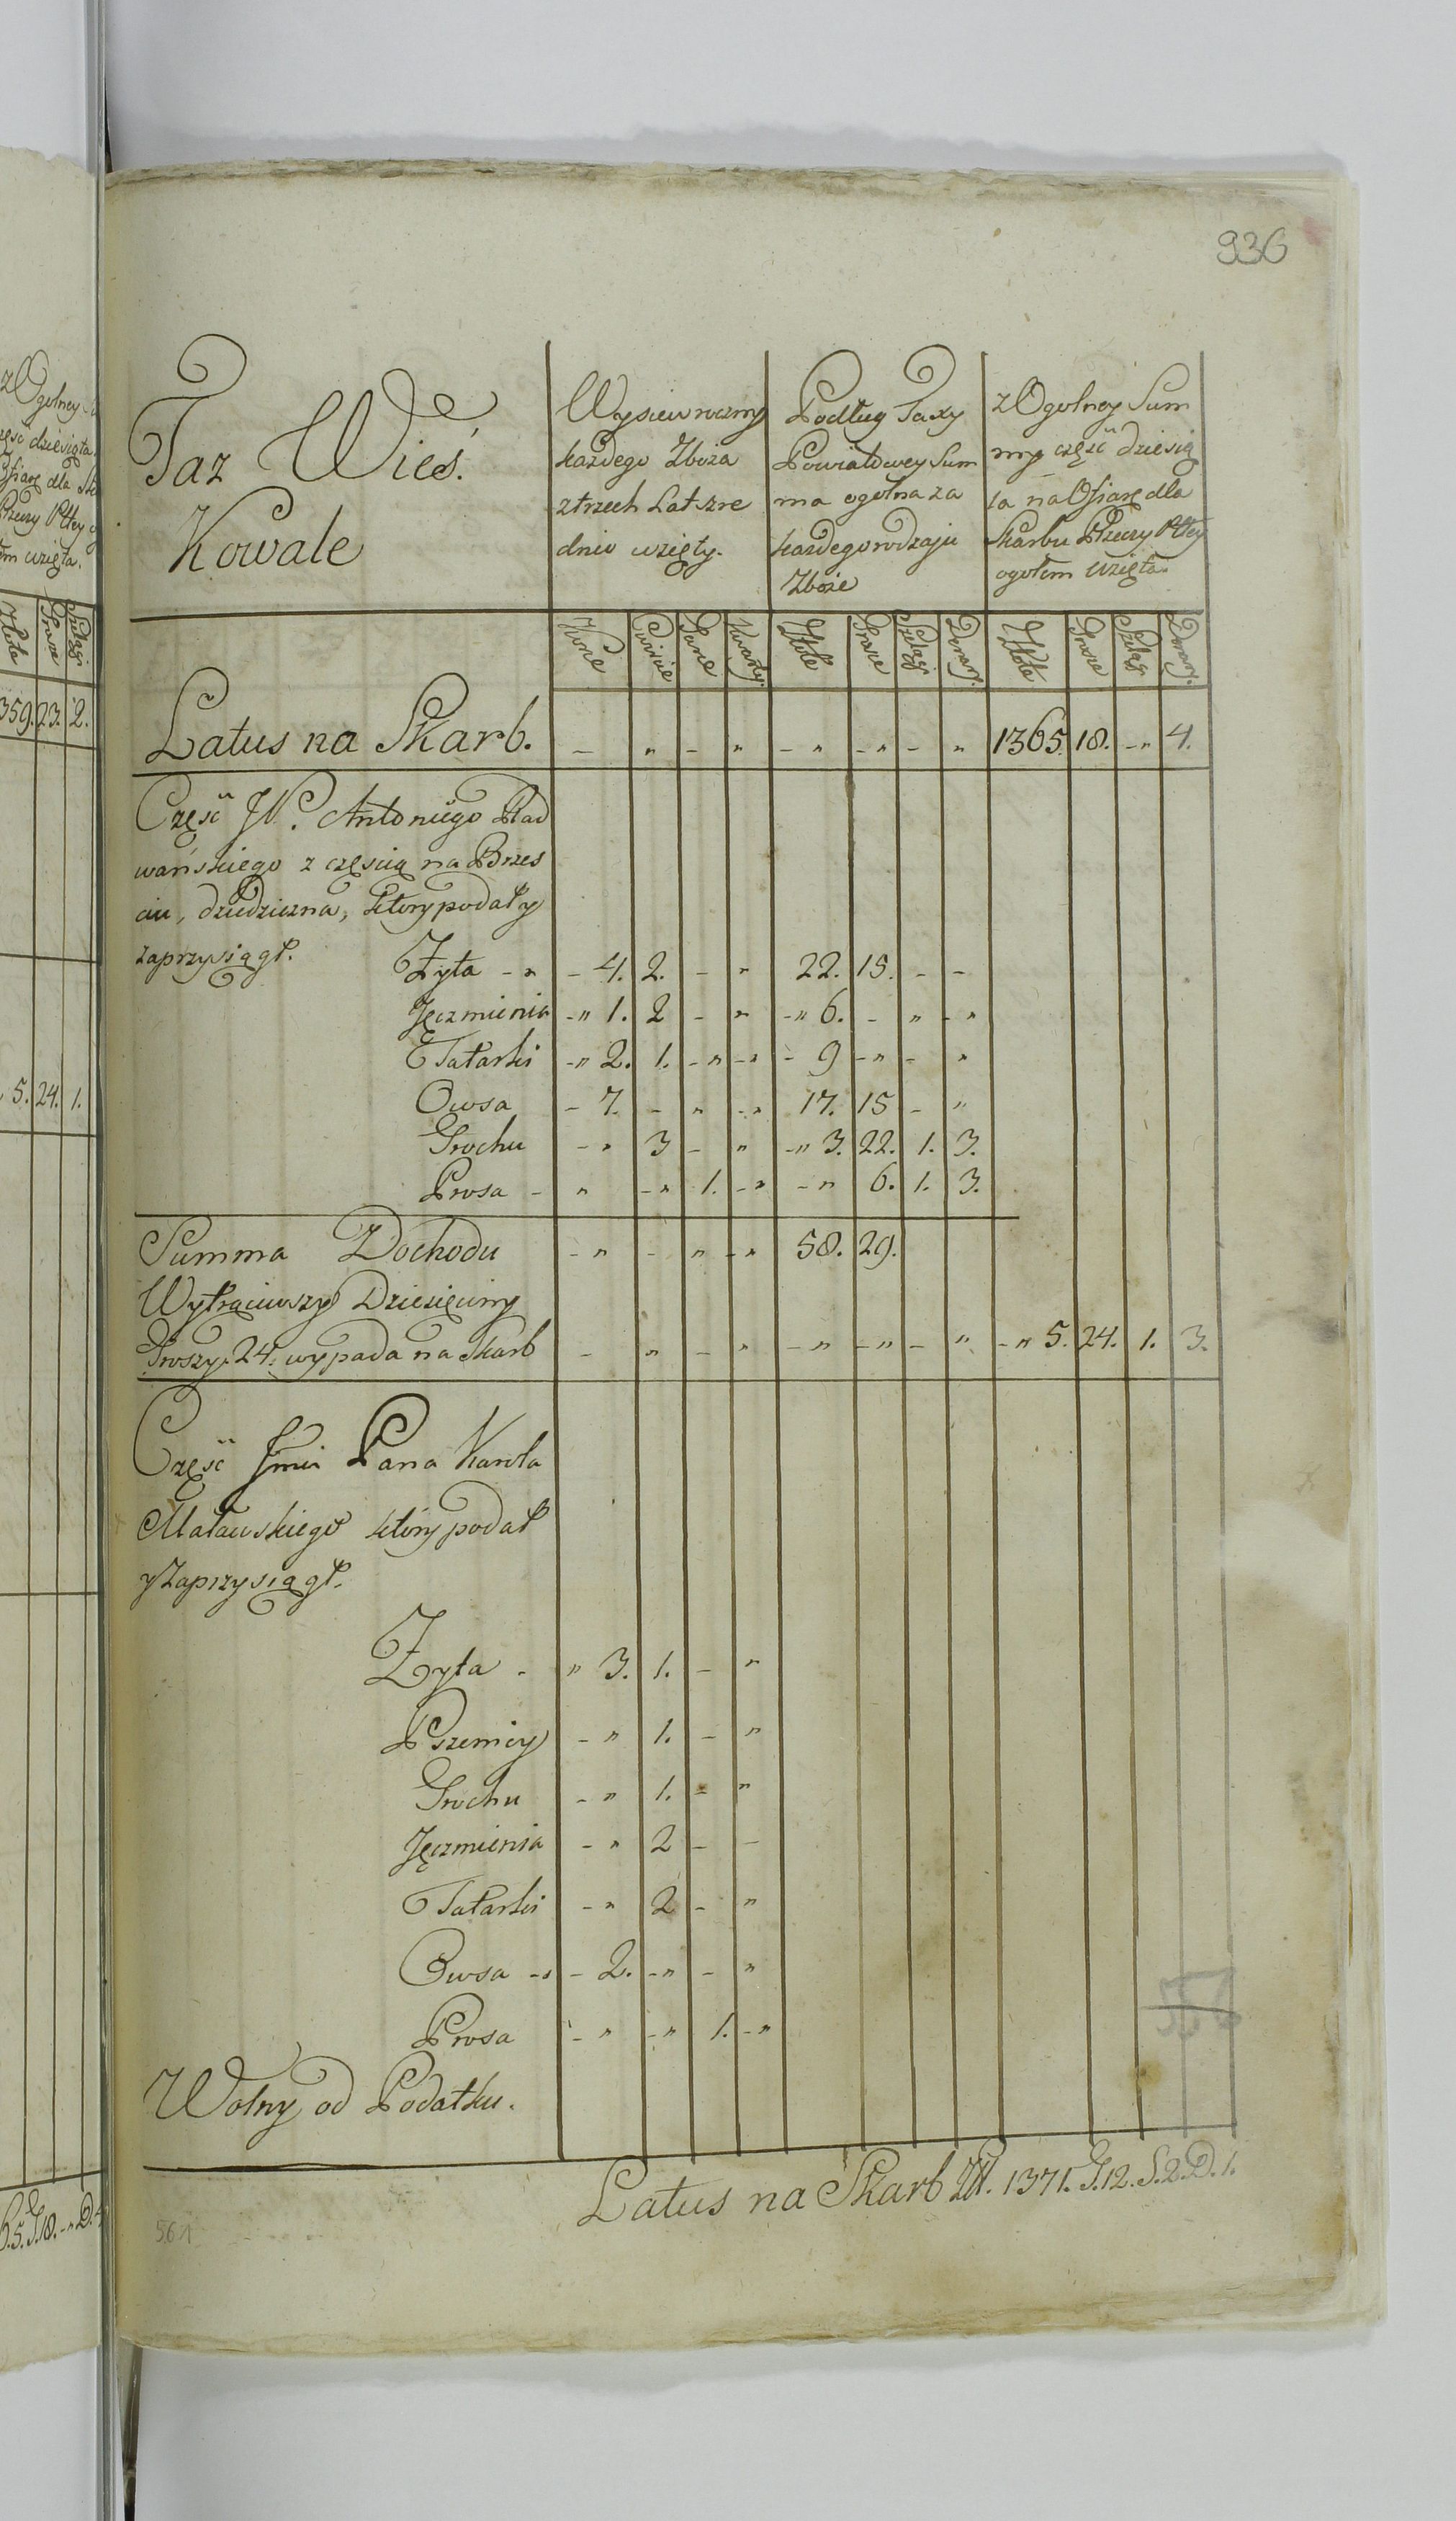 936
Taz Wieś
Kowale
Wysiew roczny
każdego Zboża
z trzech Lat szre
dnio wzięty.
Podług Taxy
Powiatowey Sum
ma ogolna za
każdego rodzaju
Zboże
z Ogolney Sum
my część dziesią
ta na Ofiarę dla
Skarbu Rzeczy Pltey
ogołem wzięta.
Korce Ćwircie Garce Kwarty. Złote Grosze Szelągi Denary. Złote Grosze Szelągi Denary.
Latus na Skarb. - " - " - " - " - " 1365. 18. - " 4.
Część W. Antoniego Rad
wańskiego z częścią na Brzes
ciu, dziedziczna, ktory podał y
zaprzysiągł.
Żyta - " - 4. 2. - " 22. 15. - -
Jęczmienia - " 1. 2 - " - " 6. - " - "
Tatarki - " 2. 1. - " - " - 9 - " - "
Owsa - 7. - " - " 17. 15 - "
Grochu - " 3 - " - " 3. 22. 1. 3.
Prosa - " - " 1. - " - " 6. 1. 3.
Summa Dochodu - " - " - " 58. 29.
Wytrąciwszy Dziesięciny
Groszy. 24. wypada na Skarb - " - " - " - " - " - " 5. 24. 1. 3.
Część Jmći Pana Karola
Maławskiego ktory podał
y Zaprzysiągł.
Żyta - " 3. 1. - "
Pszenicy - " 1. - "
Grochu - " 1. - "
Jęczmienia - " 2 - -
Tatarki - " 2 - "
Owsa - " - 2. - " - "
Prosa - " - " 1. - "
Wolny od Podatku.
Latus na Skarb Zł. 1371. G. 12. S. 2. D. 1.
561